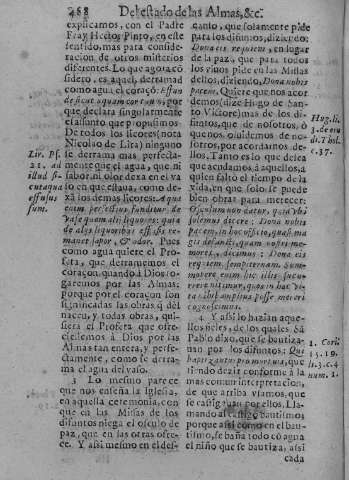 468 Del estado de las Almas, &c.
explicamos, con el Padre
Fray Hector Pinto, en este
sentido, mas para conside-
racion de otros misterios
diferentes. Lo que agora cõ
sidero, es aquel, derramad
como agua el coraçõ: Effun
de sicut aquam cor tuum, por
que declara singularmente
el assunto que propusimos.
De todos los licores (nota
Nicolao de Lira) ninguno
se derrama mas perfecta-
mente que el agua, que ni
sabor, ni olor dexa en el va
so en que estaua, como de-
xã los demas licores: Aqua
enim perfectius funditur de
vase quam alij liquores: quia
de alijs liquoribus effusis re-
manet sapor, & odor. Pues
como agua quiere el Pro-
feta, que derramemos el
coraçon, quando à Dios ro-
garemos por las Almas:
porque por el coraçon son
significadas las obras q̃ del
nacen, y todas obras, qui-
siera el Profeta que ofre-
ciessemos à Dios por las
Almas tan entera, y perfe-
ctamente, como se derra-
ma el agua del vaso.
3 Lo mesmo parece
que nos enseña la Iglesia,
en aquella ceremonia, con
que en las Missas de los
difuntos niega el osculo de
paz, que en las otras ofre-
ce. Y assi mesmo en el des-
Lir. Ps.
21. ad
illud si-
cut aqua
effusus
sum.
canto, que solamente pide
para los difuntos, diziendo:
Dona eis requiem, en lugar
de la paz, que para todos
los viuos pide en las Missas
dellos, diziendo, Dona nobis
pacem. Quiere que nos acor
demos (dize Hugo de Santo
Victore) mas de los di-
funtos, que de nosotros, ò
que nos oluidemos de no-
sotros, por acordarnos de-
llos. Tanto es lo que dessea
que acudamos à aquellos, à
quien faltò el tiempo de la
vida, en que solo se puede
obrar para merecer:
Osculum non datur, quod vbi
solemus dicere: Dona nobis
pacem, in hoc officio, quasi ma
gis defuncti, quam nostri me-
mores, dicimus: Dona eis
requiem sempiternam.
4 Y assi lo hazian aque-
llos fieles, de los quales Sã
Pablo dixo, que se bautiza-
uan por los difuntos: Qui
baptizantur pro mortuis, que
entiendo dezir conforme à la
mas comun interpretacion,
de que arriba vsamos, que
se castigauan por ellos. Lla-
mando al castigo bautismo
porque assi como en el bau-
tismo, se baña todo cõ agua
el niño que se bautiza, assi
cada
Hug. li.
3. de eru
di. Theol.
c. 37.
1. Cori.
15. 19.
li. 3. c. 4
num. 1.